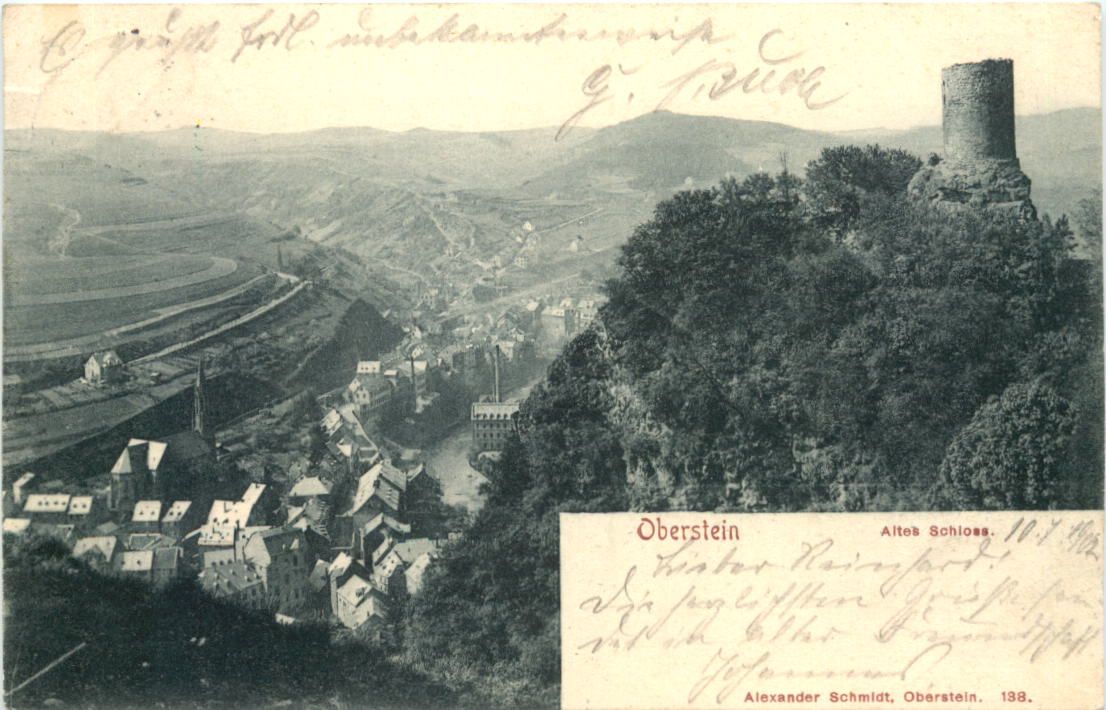 Es grüßt frdl. unbekannterweise
G.
Oberstein Altes Schloss. 10.7.
Lieber Reinhard!
Die herzlichsten Grüße sen-
det in alter Freundschaft
Johannes
Alexander Schmidt, Oberstein. 138.